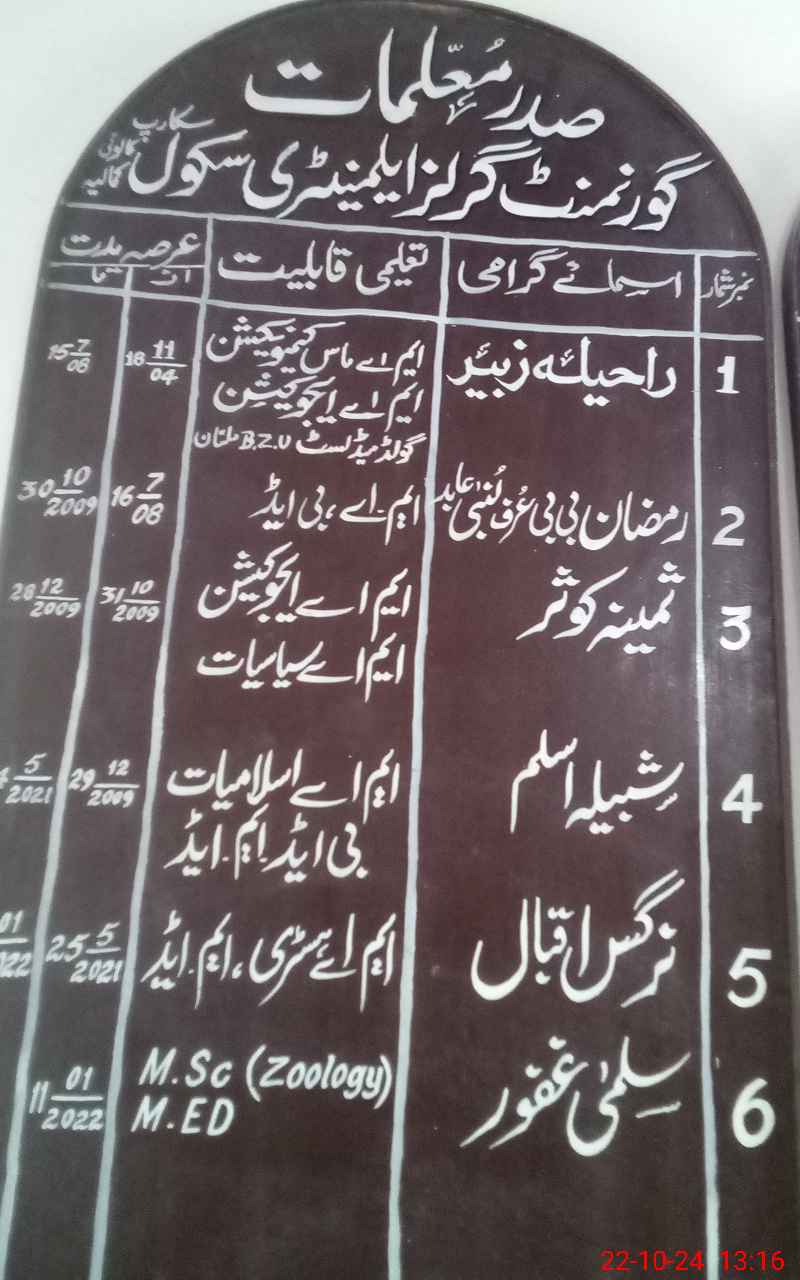 صدر معلمات
گورنمنٹ گرلز ایلیمنٹری سکول سکارپ کالونی کمالیہ
نمبر شمار اسمائے گرامی تعلیمی قابلیت عرصہ مدت
از تا
1 راحیلہ زبیر ایم اے ماس کیمونیکیشن 18 11/04 15 7/08
ایم اے ایجوکیشن
گولڈ میڈلسٹ B.Z.U ملتان
2 رمضان بی بی عُرف لُبنیٰ عابد ایم۔اے، بی ایڈ 16 7/08 30 10/2009
3 ثمینہ کوثر ایم اے ایجوکیشن 31 10/2009 28 12/2009
ایم اے سیاسیات
4 شبیلہ اسلم ایم اے اسلامیات 29 12/2009 5/2021
بی ایڈ۔ایم۔ایڈ
5 نرگس اقبال ایم اے ہسٹری، ایم۔ایڈ 25 5/2021
6 سلمیٰ غفور M.Sc (Zoology) 11 01/2022
M.ED
22-10-24 13:16